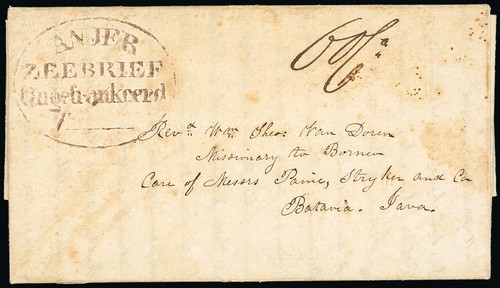 ANJER
ZEEBRIEF
Ongefrankeerd
Revd. Wm. Theos. Van Doren
Missionary to Borneo
Care of Messrs Paine, Stryker and Co
Batavia. Java.